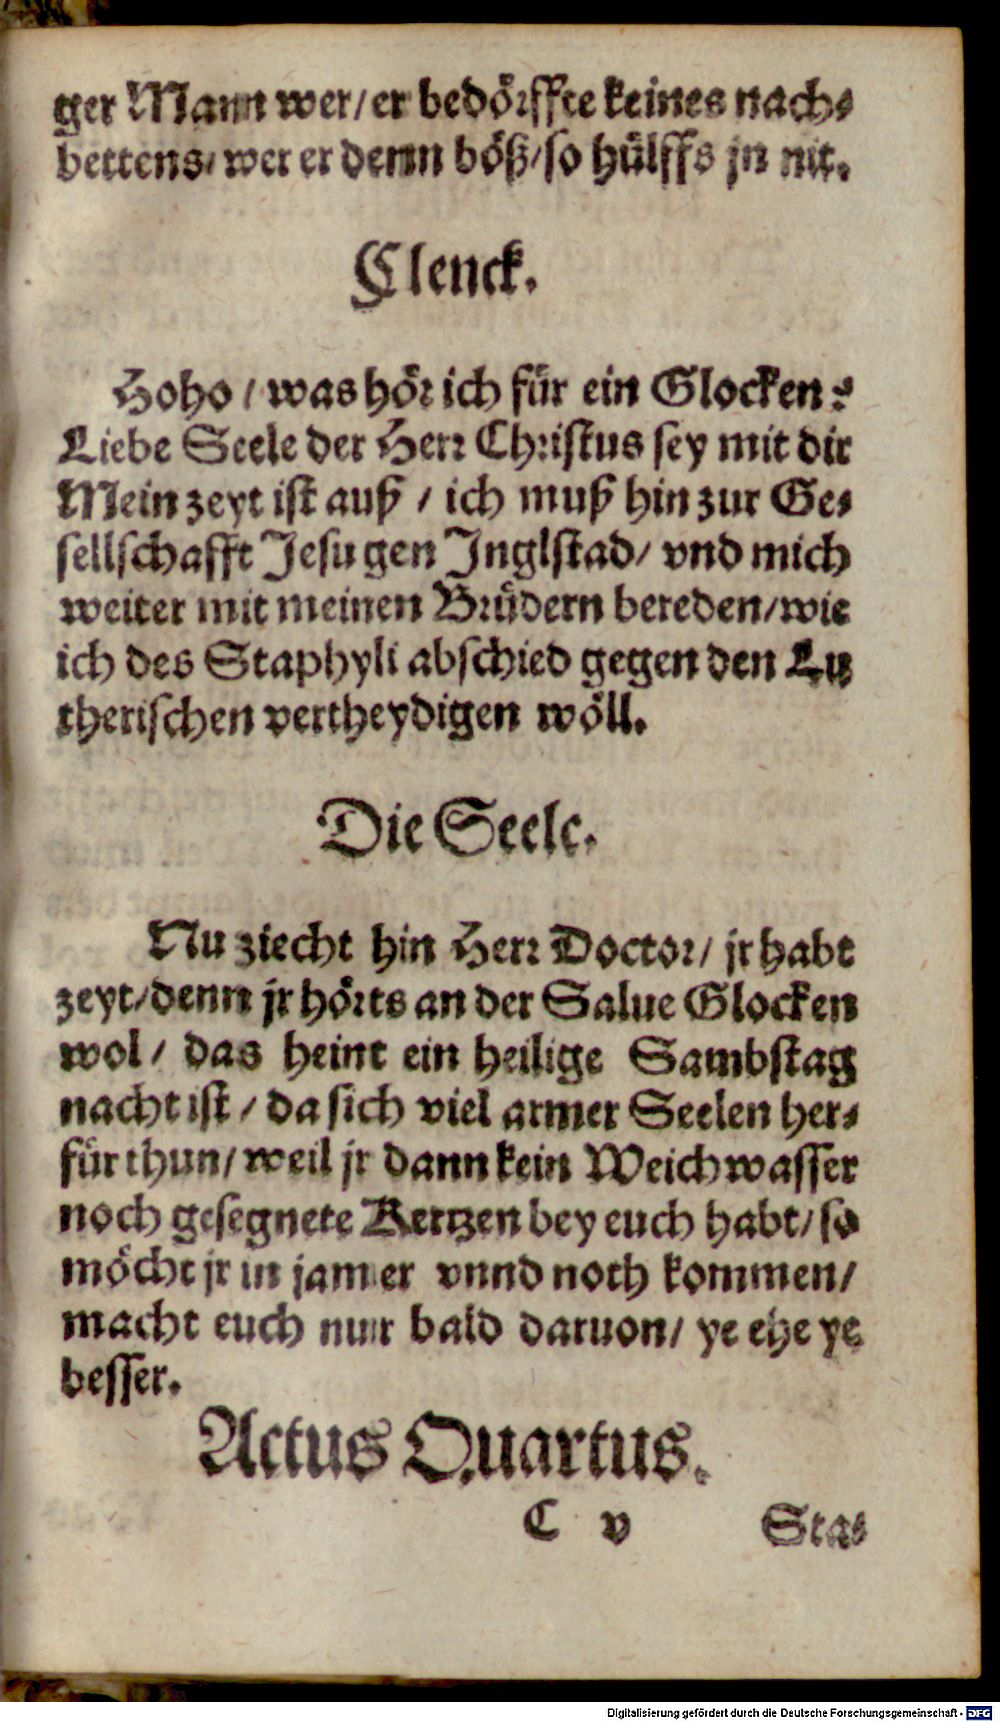 ger Mann wer/ er bedörffte keines nach⸗
bettens/ wer er denn böß/ so hülffs jn nit.
Clenck.
Hoho / was hör ich für ein Glocken?
Liebe Seele der Herr Christus sey mit dir
Mein zeyt ist auß / ich muß hin zur Ge⸗
sellschafft Jesu gen Jnglstad/ vnd mich
weiter mit meinen Brüdern bereden/ wie
ich des Staphyli abschied gegen den Lu
therischen vertheydigen wöll.
Die Seele.
Nu ziecht hin Herr Doctor/ jr habt
zeyt/ denn jr hörts an der Salue Glocken
wol / das heint ein heilige Sambstag
nacht ist / da sich viel armer Seelen her⸗
für thun/ weil jr dann kein Weichwasser
noch gesegnete Kertzen bey euch habt/ so
möcht jr in jamer vnnd noth kommen/
macht euch nur bald daruon/ ye ehe ye
besser.
Actus Quartus.
C v Sta⸗
Digitalisierung gefördert durch die Deutsche Forschungsgemeinschaft - DFG